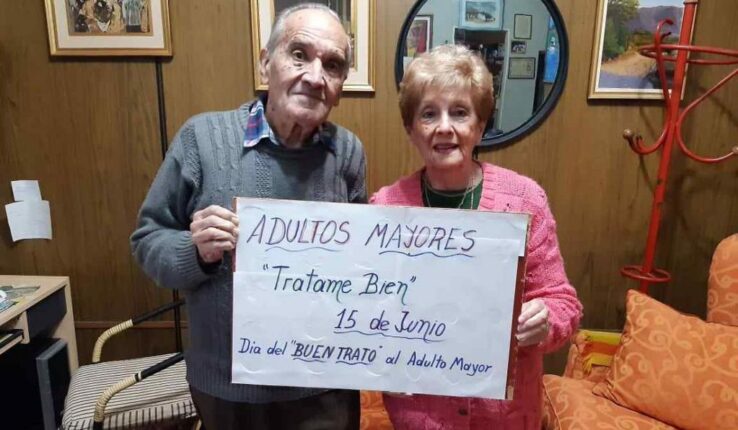 ADULTOS MAYORES
"Tratame Bien"
15 de Junio
Dia del "BUEN TRATO" al Adulto Mayor